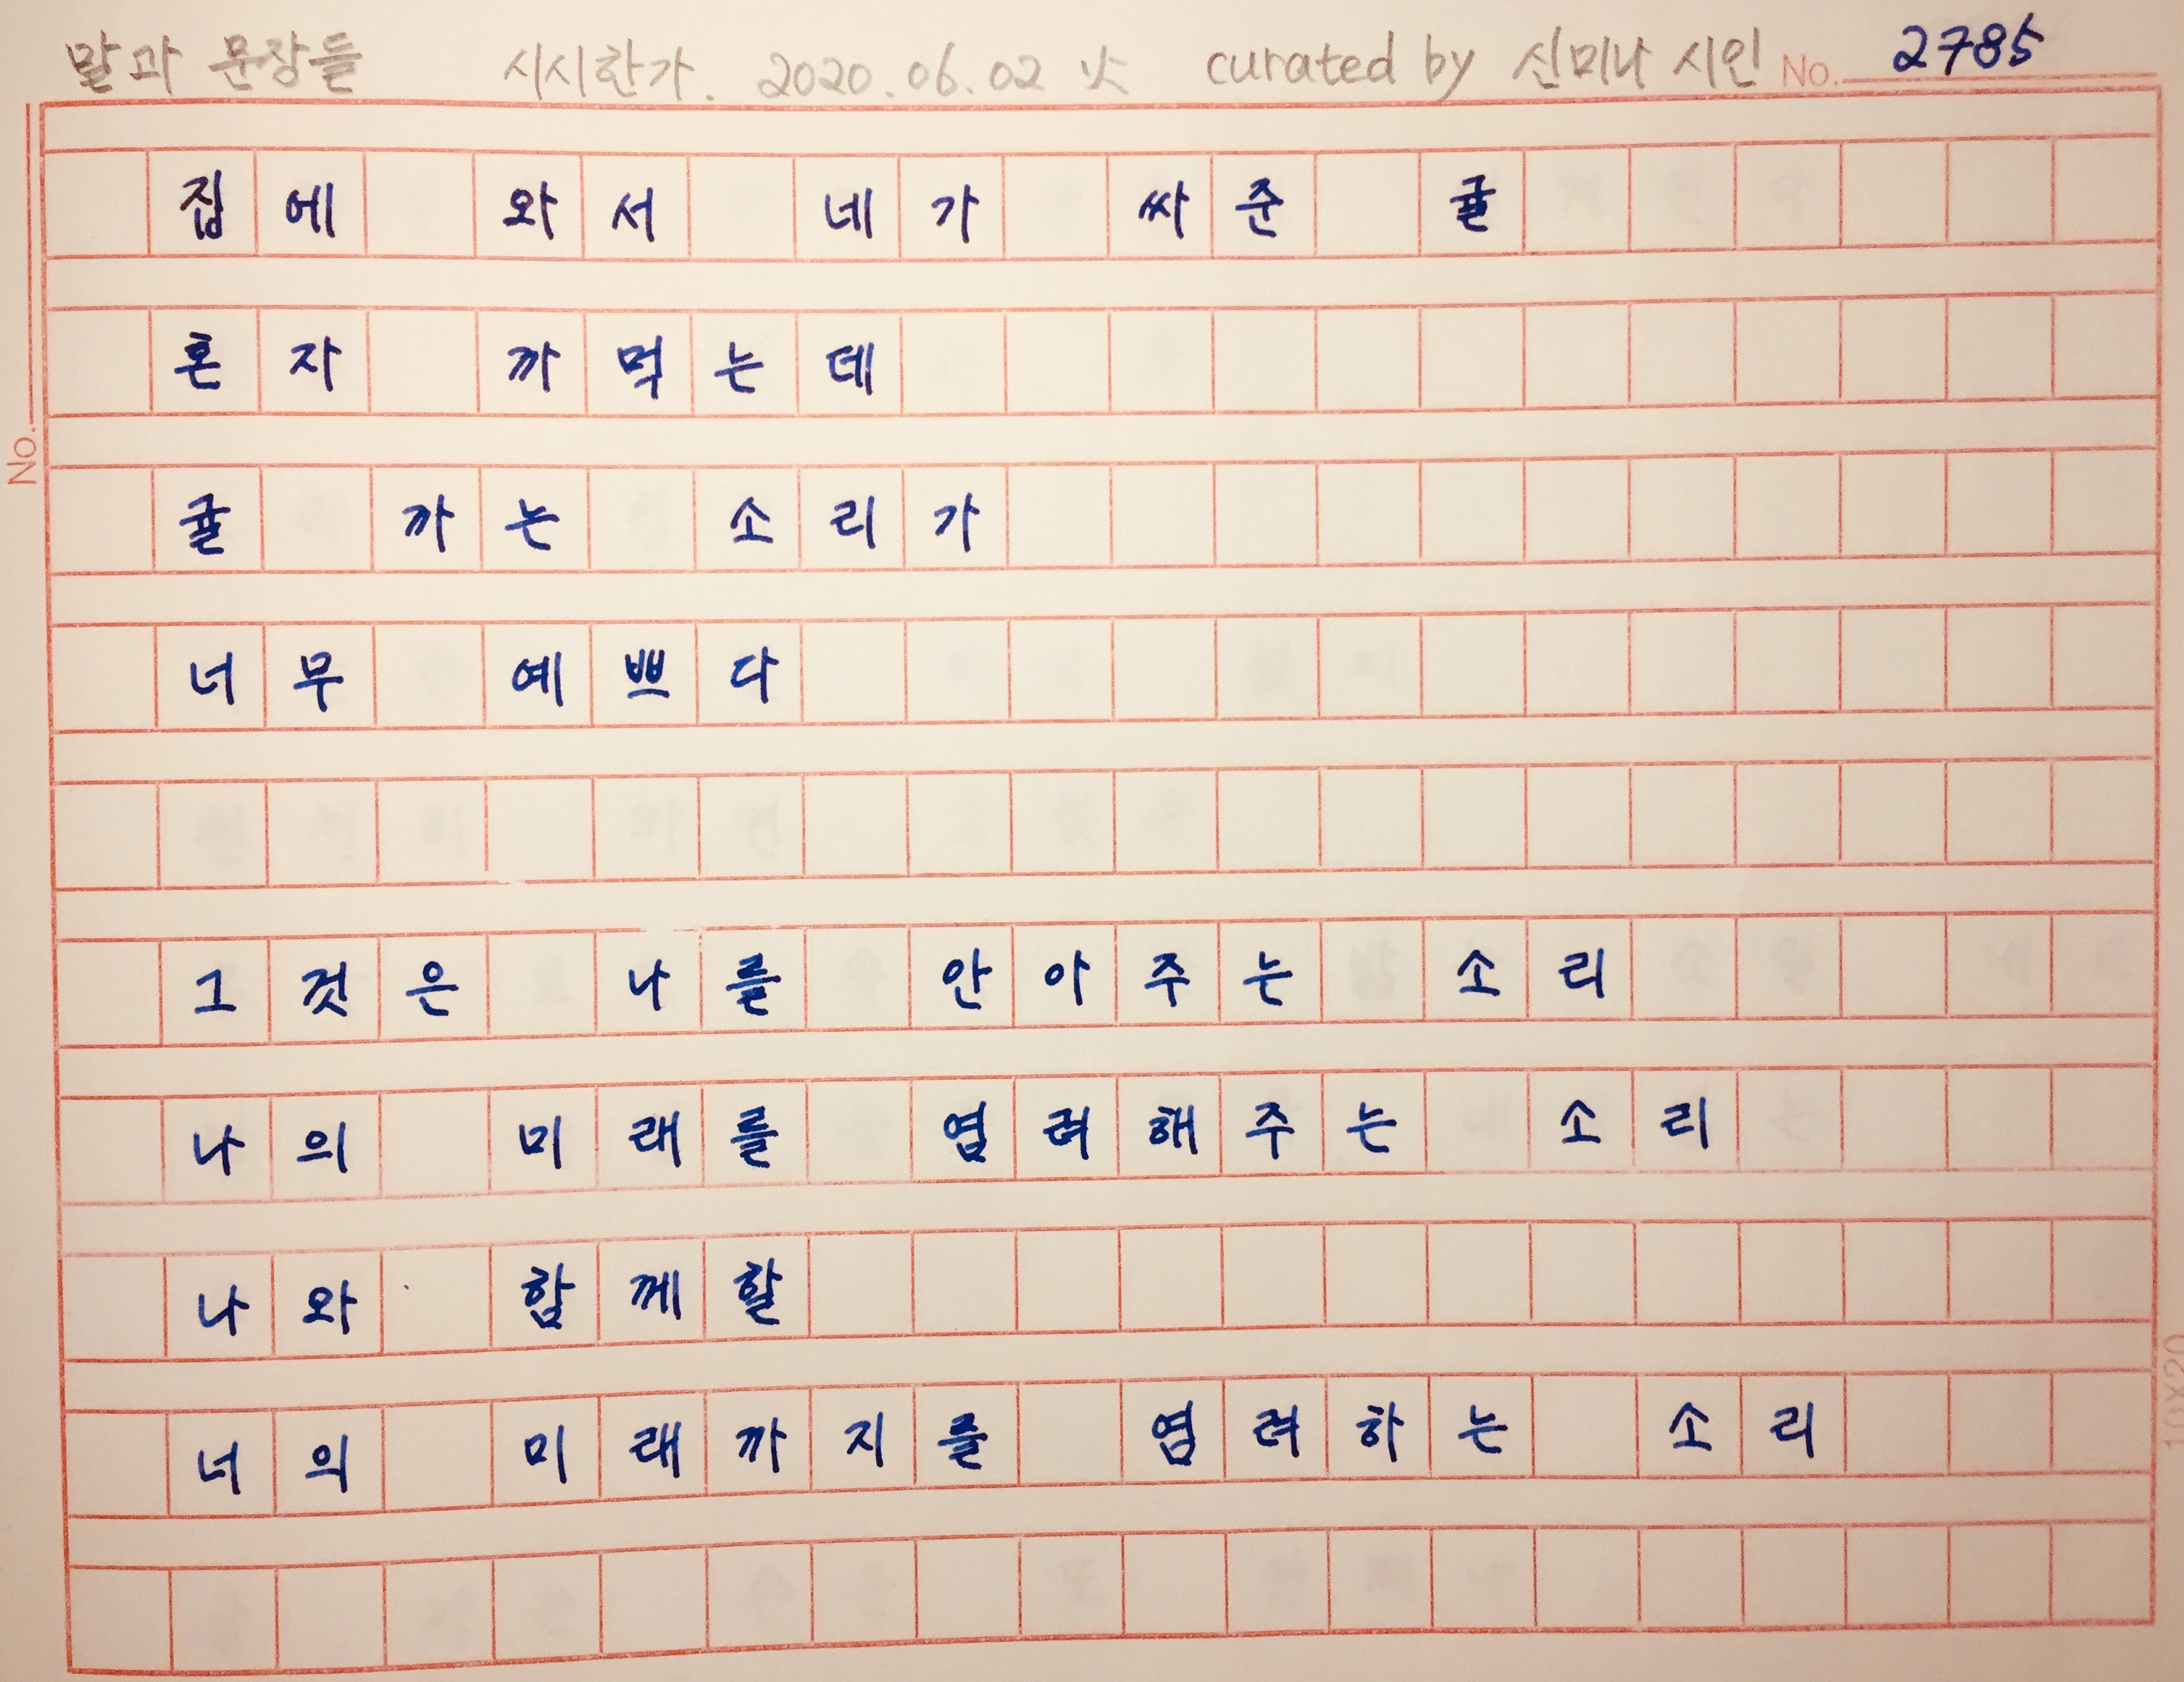 말과 문장들 시시한가. 2020.06.02 火 curated by 신미나 시인 No. 2785
집에 와서 네가 싸준 귤
혼자 까먹는데
귤 까는 소리가
너무 예쁘다
그것은 나를 안아주는 소리
나의 미래를 염려해주는 소리
나와 함께할
너의 미래까지를 염려하는 소리
No.